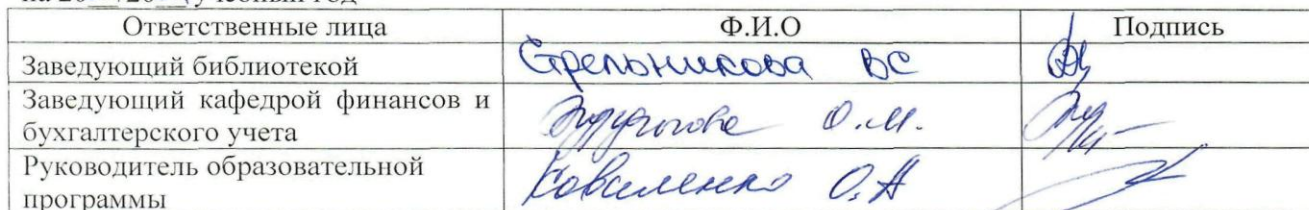 учебный год
Ответственные лица Ф.И.О Подпись
Заведующий библиотекой Стрельникова ВС
Заведующий кафедрой финансов и
бухгалтерского учета О.М.
Руководитель образовательной Коваленко О.А
программы